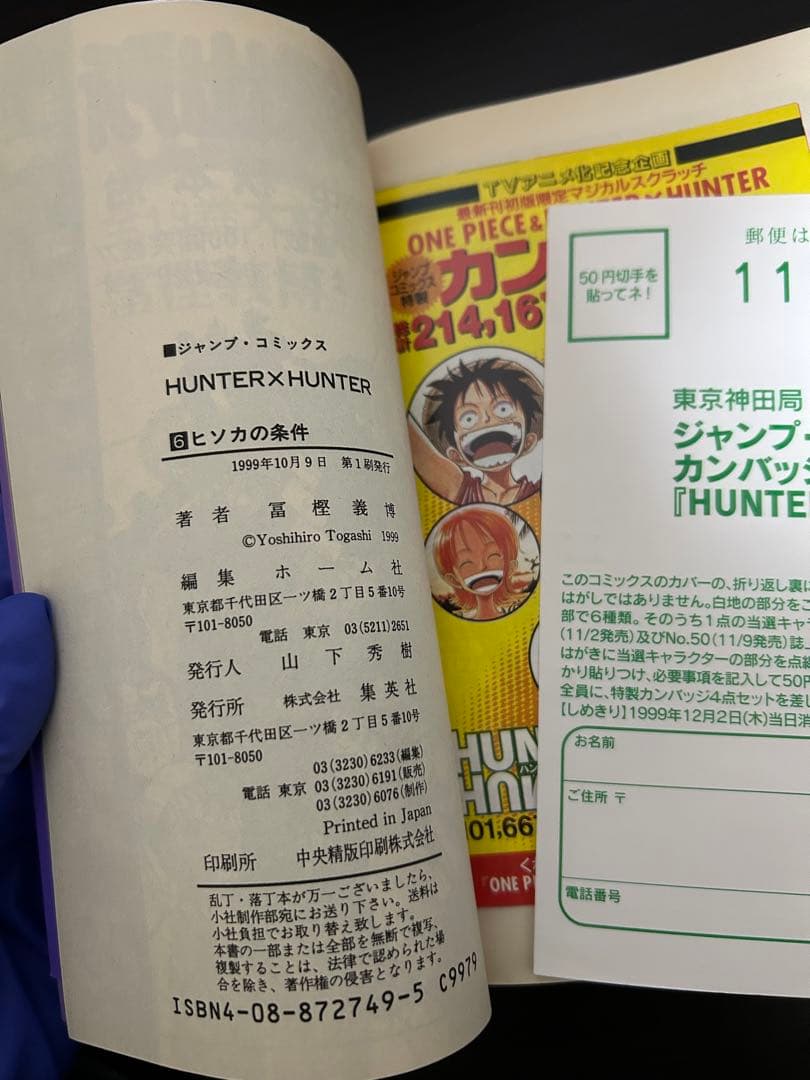 ■ジャンプ・コミックス
HUNTER×HUNTER
6ヒソカの条件
1999年10月9日 第1刷発行
著者 冨樫義博
©Yoshihiro Togashi 1999
編集 ホーム社
東京都千代田区一ツ橋2丁目5番10号
〒101-8050
電話 東京 03(5211)2651
発行人 山下秀樹
発行所 株式会社 集英社
東京都千代田区一ツ橋2丁目5番10号
〒101-8050
03(3230)6233(編集)
電話 東京 03(3230)6191(販売)
03(3230)6076(制作)
Printed in Japan
印刷所 中央精版印刷株式会社
乱丁・落丁本が万一ございましたら、
小社制作部宛にお送り下さい。送料は
小社負担でお取り替え致します。
本書の一部または全部を無断で複写、
複製することは、法律で認められた場
合を除き、著作権の侵害となります。
ISBN4-08-872749-5 C9979
TVアニメ化記念企画
最新刊初版限定マジカルスクラッチ
ONE PIECE& HUNTER×HUNTER
ジャンプ
コミックス
特製
カン
総計214,16
HUN
HUN
101,66
『ONE P
郵便は
50円切手を
貼ってネ!
11
東京神田局
ジャンプ・
カンバッジ
『HUNTE
このコミックスのカバーの、折り返し裏に
はがしではありません。白地の部分をこ
部で6種類。そのうち1点の当選キャラ
(11/2発売)及びNo.50(11/9発売)誌上
はがきに当選キャラクターの部分を点線
かり貼りつけ、必要事項を記入して50円
全員に、特製カンバッジ4点セットを差し
【しめきり】1999年12月2日(木)当日消
お名前
ご住所 〒
電話番号